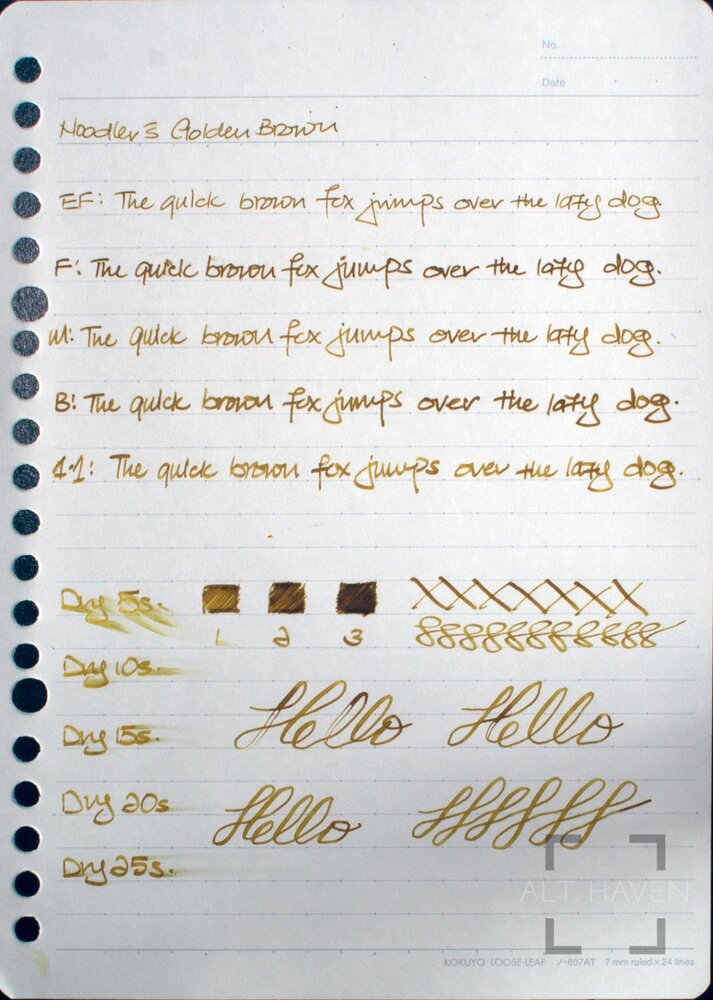 No.
Date
Noodler's Golden Brown
EF: The quick brown fox jumps over the lazy dog.
F: The quick brown fox jumps over the lazy dog.
M: The quick brown fox jumps over the lazy dog.
B: The quick brown fox jumps over the lazy dog.
1.1: The quick brown fox jumps over the lazy dog.
Dry 5s.
1 2 3
Dry 10s.
Hello Hello
Dry 15s.
Dry 20s
Hello
Dry 25s.
ALT. HAVEN
KOKUYO LOOSE-LEAF ノ-807AT 7 mm ruled×24 lines